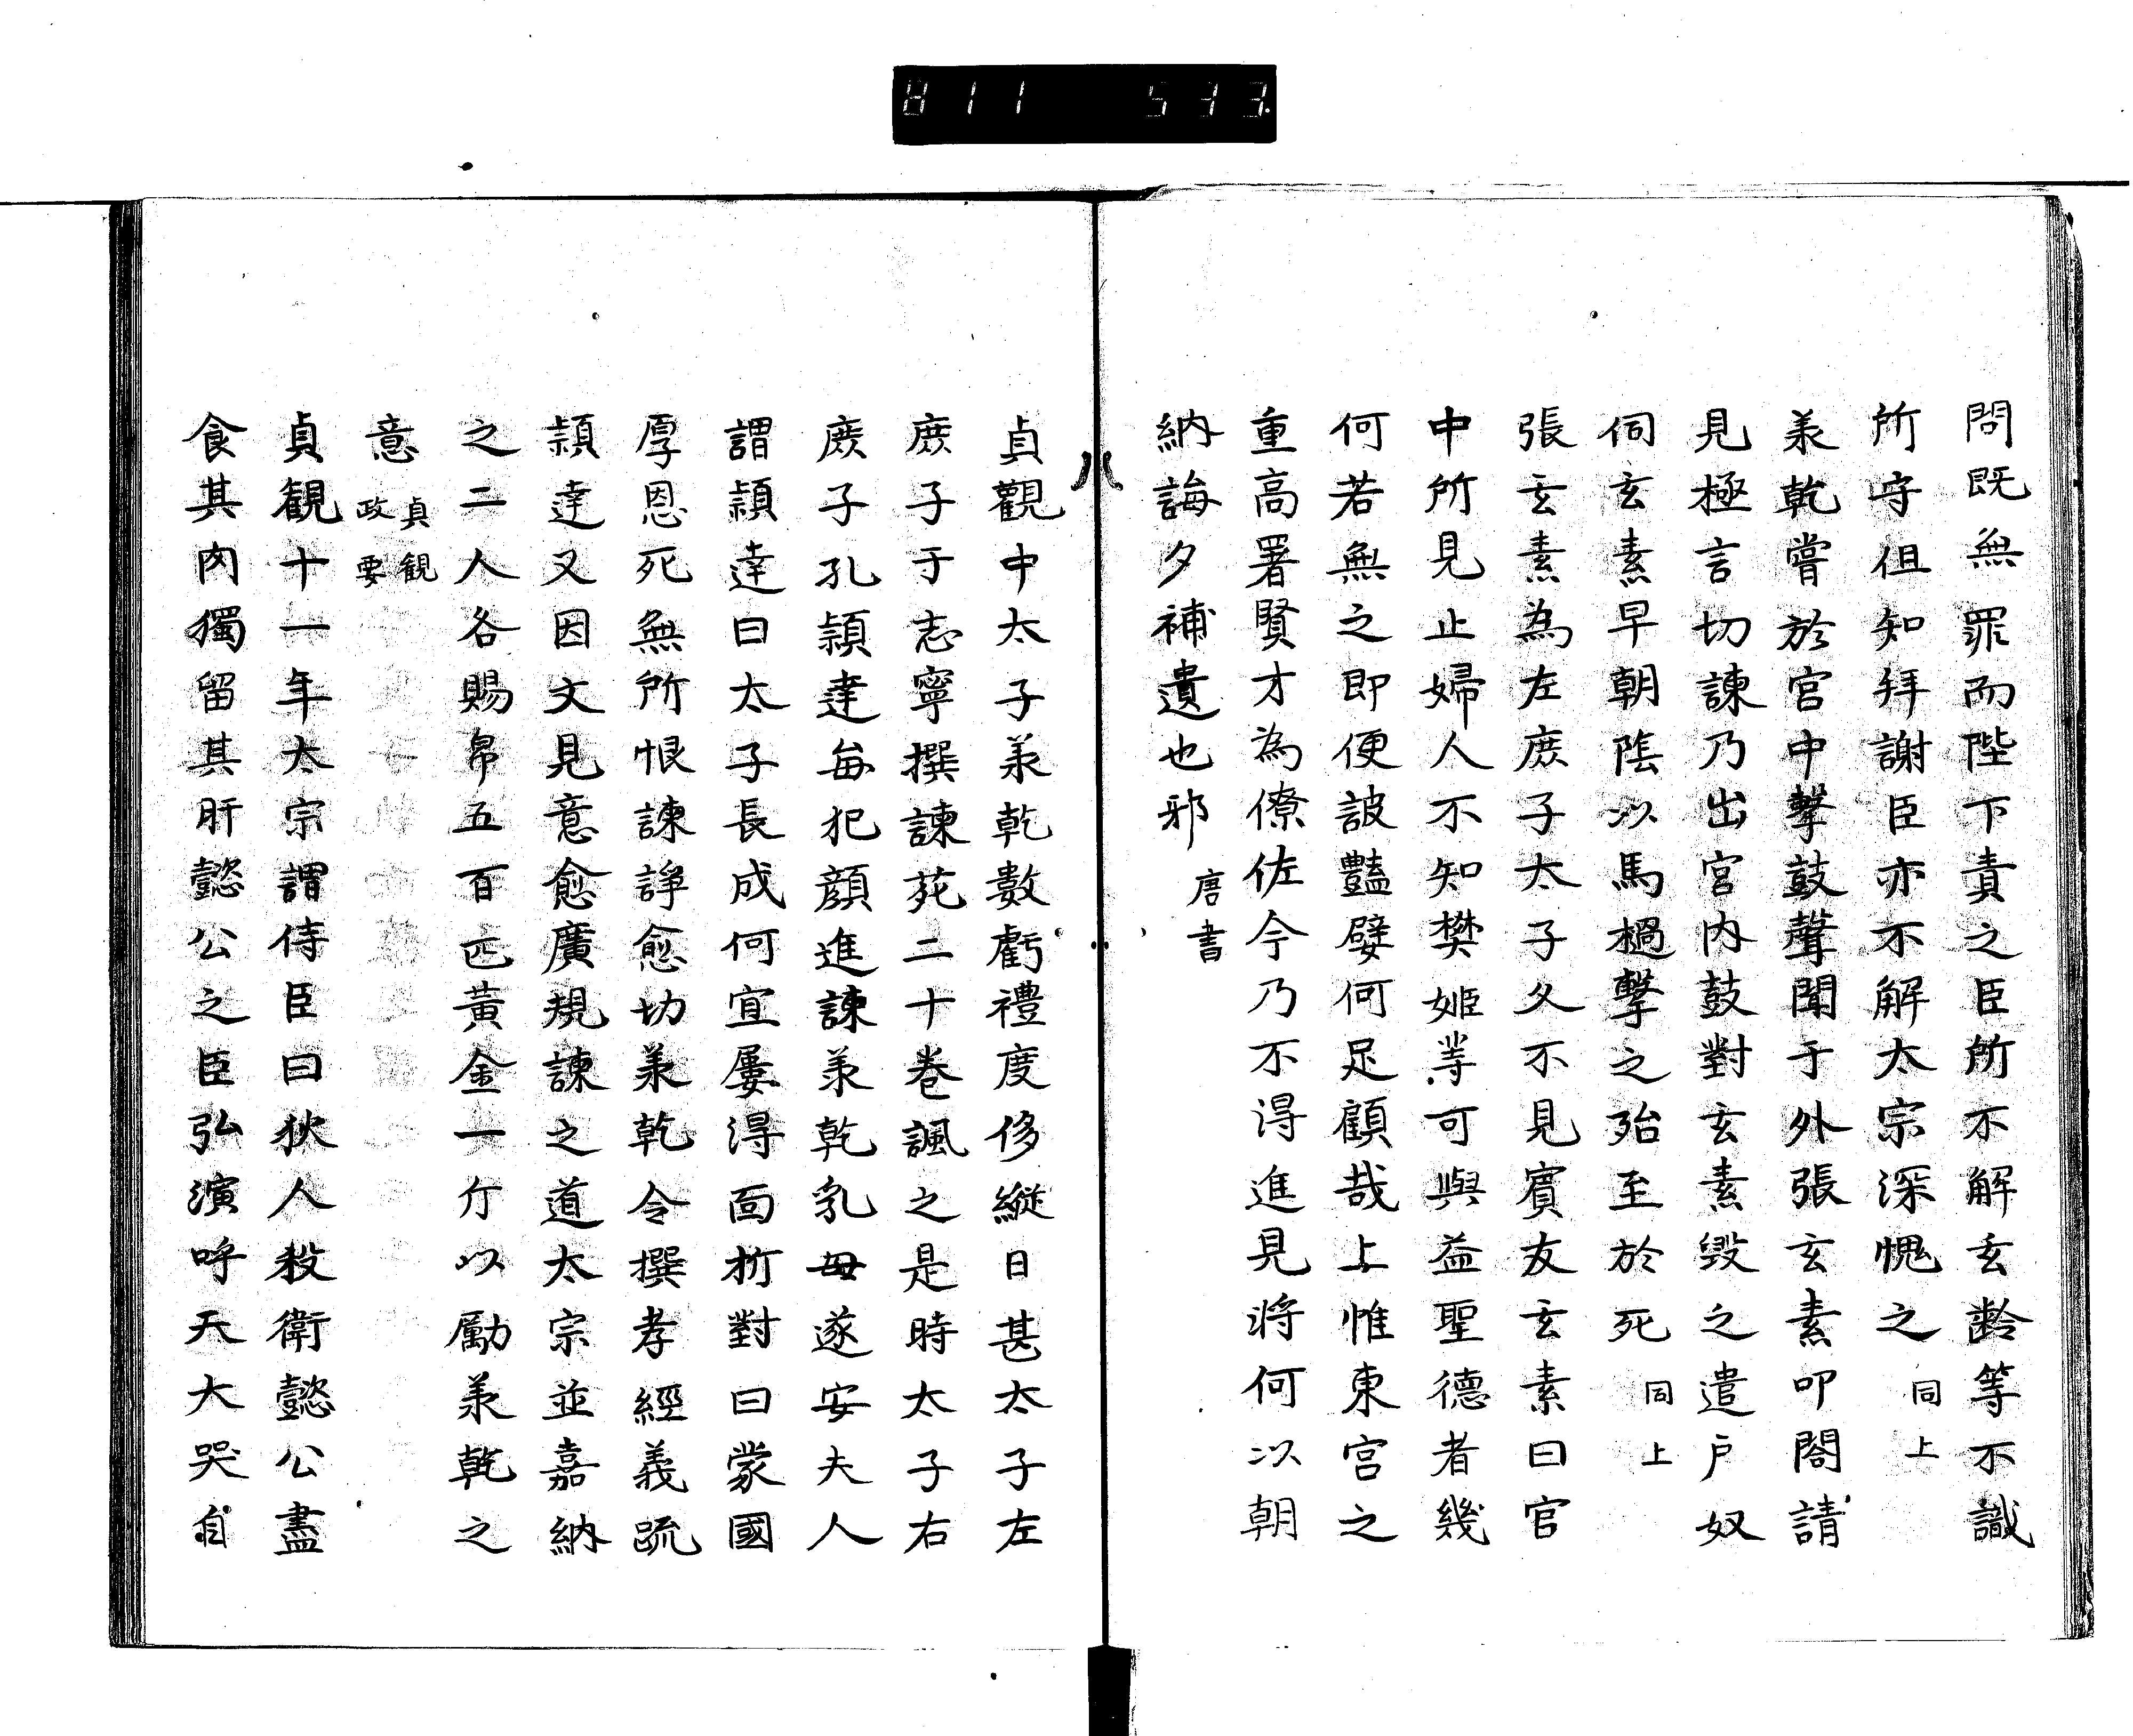 811 533.
問既無罪而陛下責之臣所不解玄齡等不識
所守但知拜謝臣亦不解太宗深愧之 同上
承乾嘗於宮中擊鼓聲聞于外張玄素叩閤請
見極言切諫乃出宮內鼓對玄素毀之遣戶奴
伺玄素早朝陰以馬檛擊之殆至於死 同上
張玄素為左庶子太子久不見賓友玄素曰宮
中所見止婦人不知樊姬等可與益聖德者幾
何若無之即便詖豔嬖何足顧哉上惟東宮之
重高署賢才為僚佐今乃不得進見將何以朝
納誨夕補遺也邪 唐書
貞觀中太子承乾數虧禮度侈縱日甚太子左
庶子于志寧撰諫苑二十卷諷之是時太子右
庶子孔穎達每犯顏進諫承乾乳母遂安夫人
謂穎達曰太子長成何宜屢得面折對曰蒙國
厚恩死無所恨諫諍愈切承乾令撰孝經義疏
穎達又因文見意愈廣規諫之道太宗並嘉納
之二人各賜帛五百匹黃金一斤以勵承乾之
意 貞觀政要
貞觀十一年太宗謂侍臣曰狄人殺衛懿公盡
食其肉獨留其肝懿公之臣弘演呼天大哭自